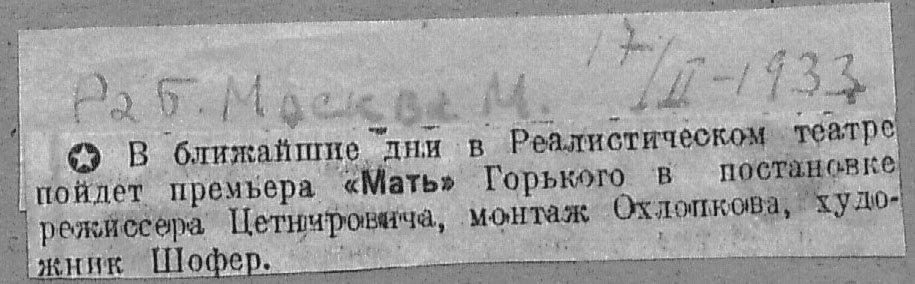 Раб. Москва М. 17/II-1933
✪ В ближайшие дни в Реалистическом театре
пойдет премьера «Мать» Горького в постановке
режиссера Цетнировича, монтаж Охлопкова, худо-
жник Шофер.